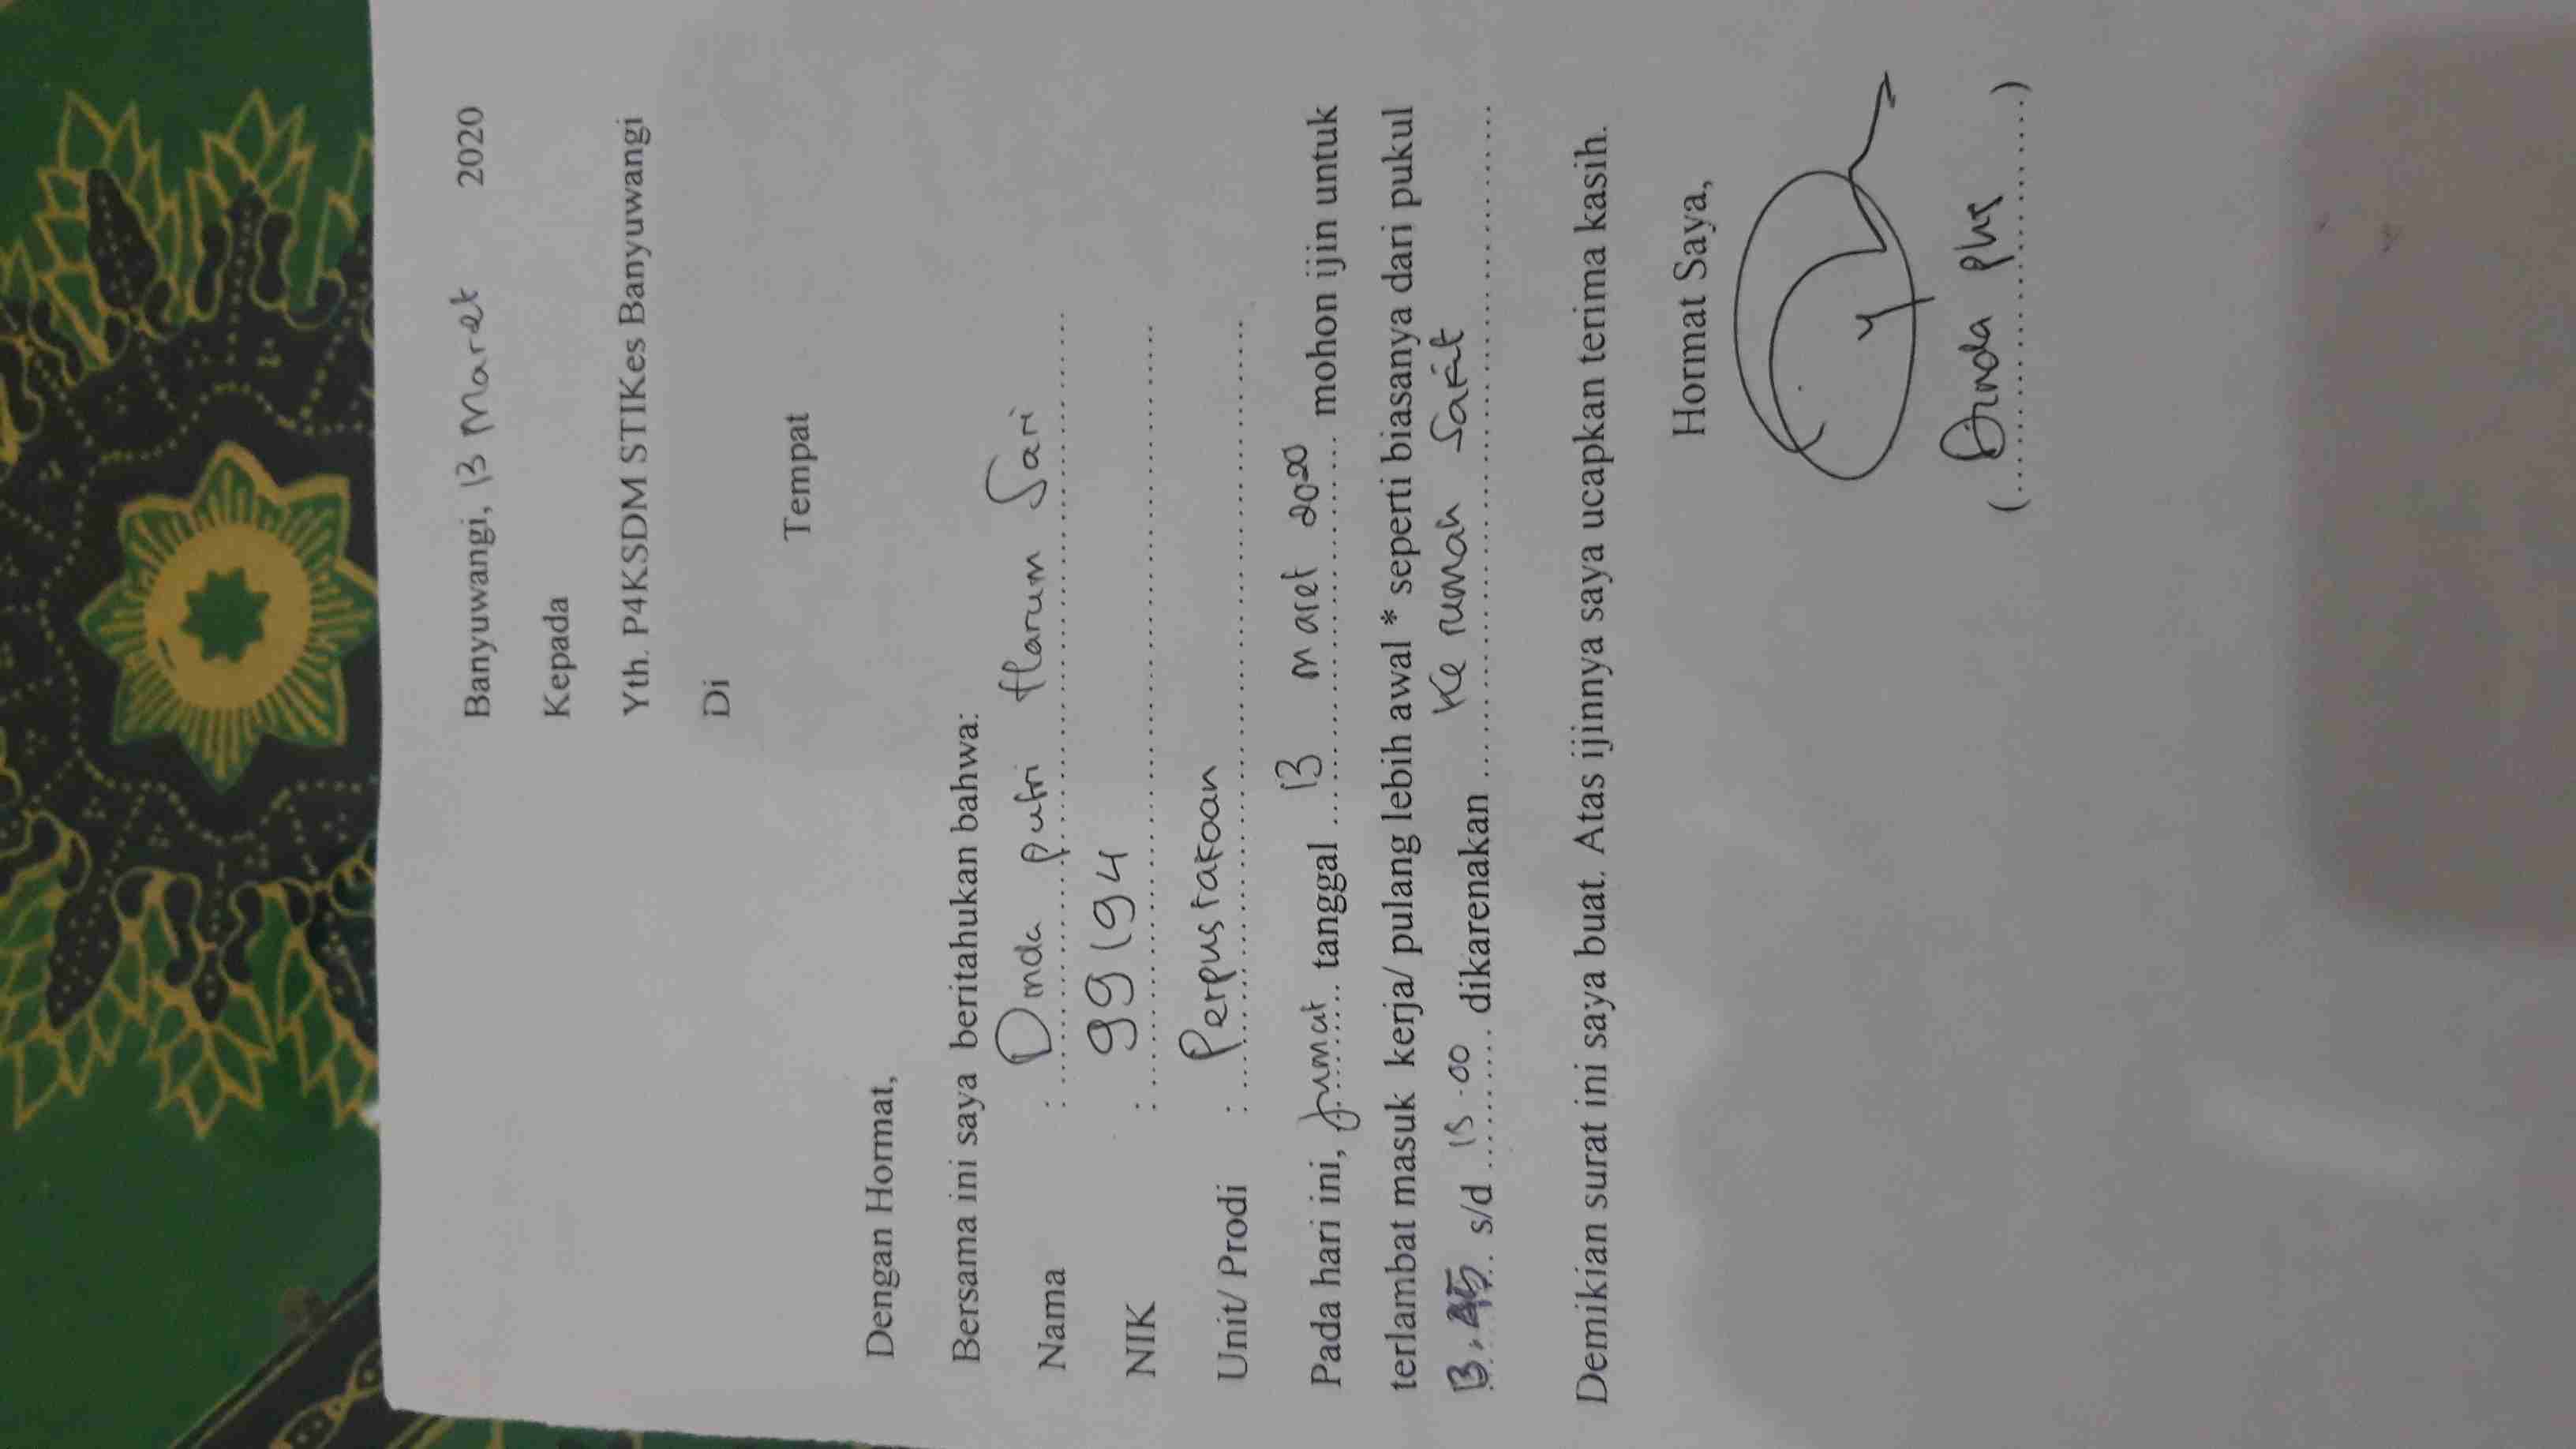 Banyuwangi, 13 Maret 2020
Kepada
Yth. P4KSDM STIKes Banyuwangi
Di
Tempat
Dengan Hormat,
Bersama ini saya beritahukan bahwa:
Nama : Dinda putri Harum Sari
NIK : 99194
Unit/ Prodi : Perpustakaan
Pada hari ini, Jumat tanggal 13 maret 2020 mohon ijin untuk
terlambat masuk kerja/ pulang lebih awal * seperti biasanya dari pukul
13.45 s/d 15.00 dikarenakan Ke rumah Sakit
Demikian surat ini saya buat. Atas ijinnya saya ucapkan terima kasih.
Hormat Saya,
(Dinda phs)